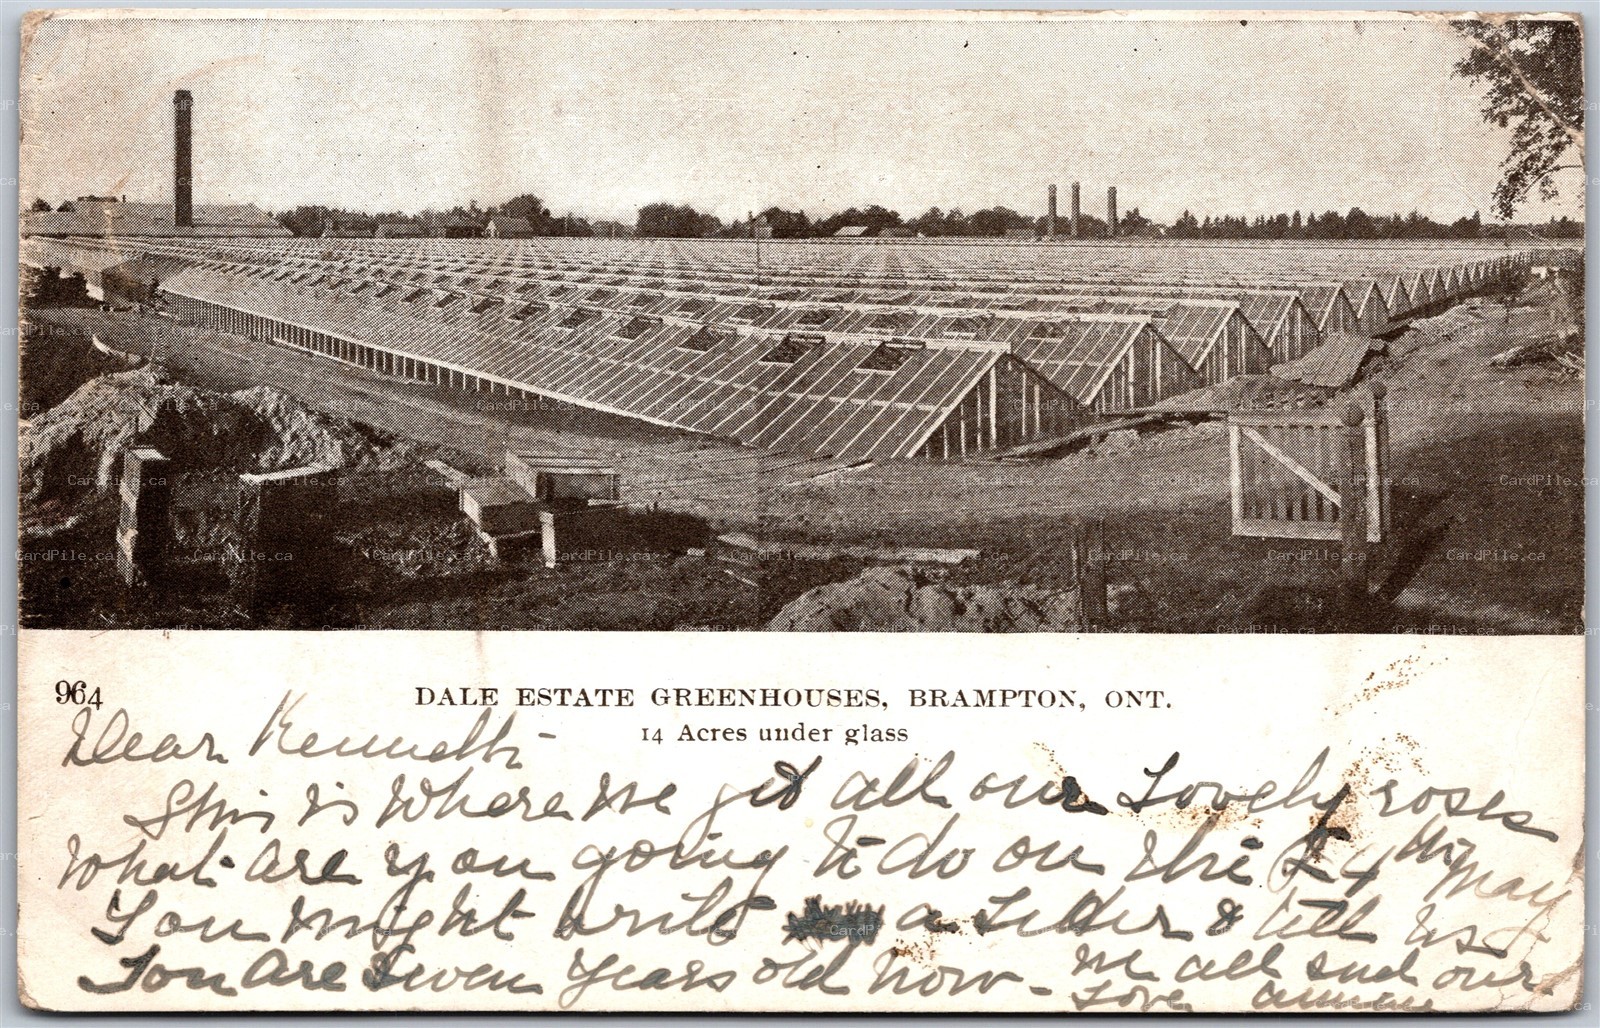 964
DALE ESTATE GREENHOUSES, BRAMPTON, ONT.
14 Acres under glass
Dear Kenneth -
This is where we get all our Lovely roses
What are you going to do on the 24th May
You might write a Letter & tell us
You are Seven years old now - we all send our
Love
CardPile.ca